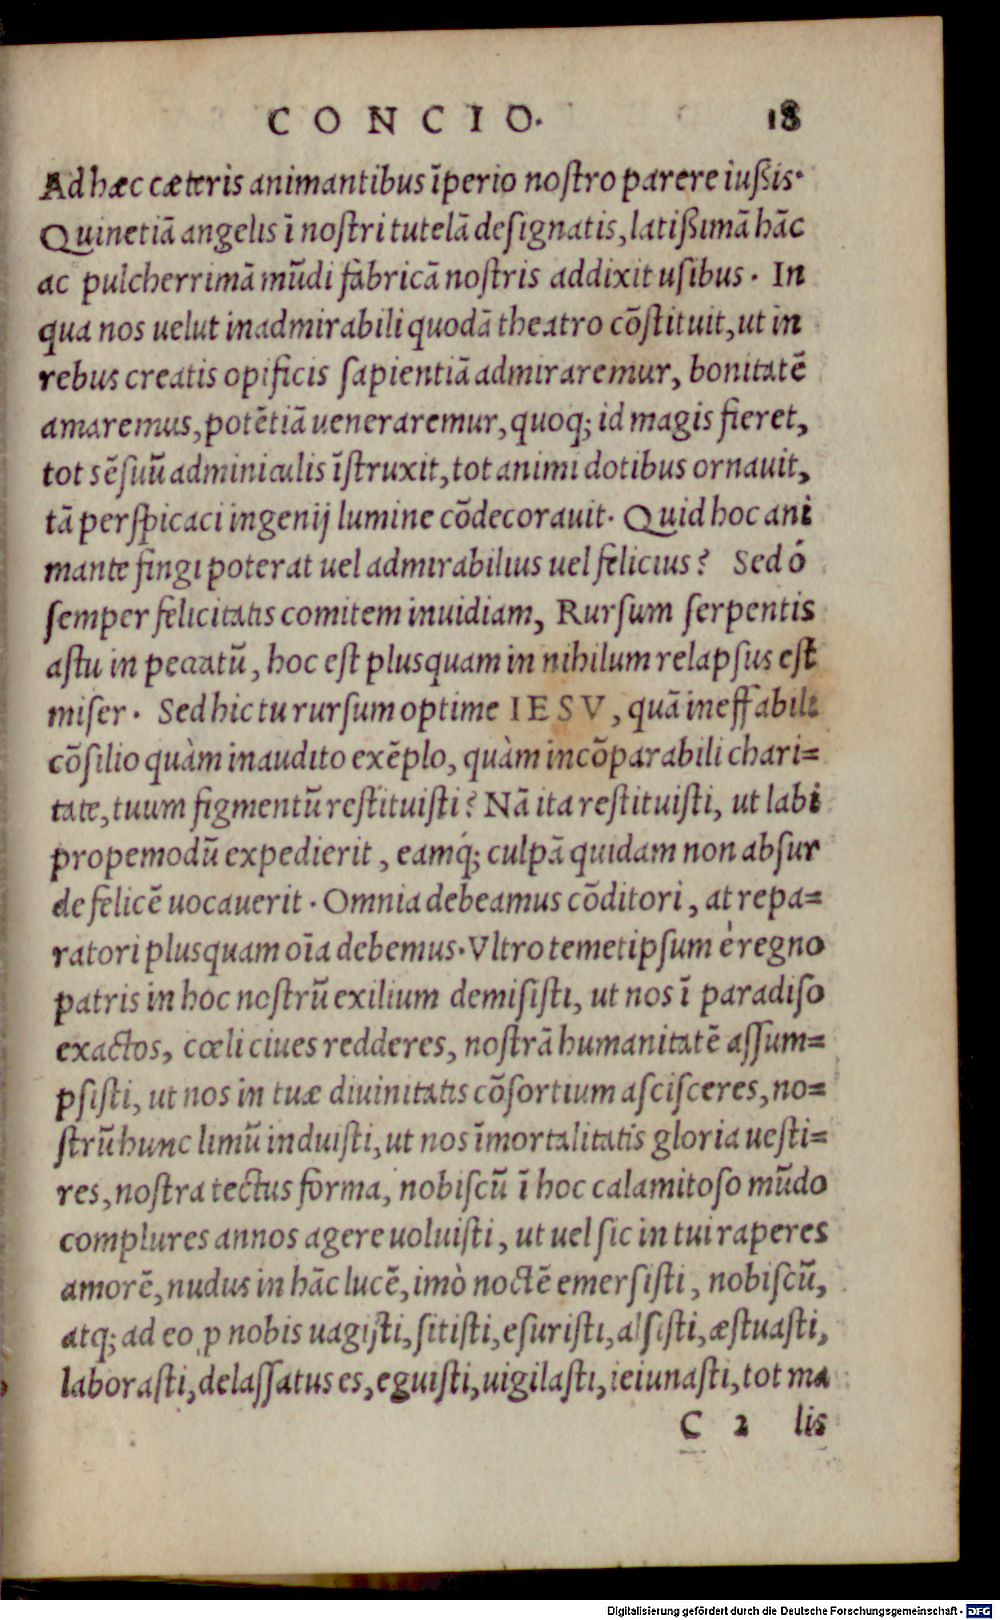 CONCIO. 18
Ad hæc cæteris animantibus ĩperio noſtro parere iuſsis.
Quinetiã angelis ĩ noſtri tutelã deſignatis, latiſsimã hãc
ac pulcherrimã mũdi fabricã noſtris addixit uſibus. In
qua nos uelut in admirabili quodã theatro cõſtituit, ut in
rebus creatis opificis ſapientiã admiraremur, bonitatẽ
amaremus, potẽtiã ueneraremur, quoq; id magis fieret,
tot sẽſuũ adminiculis ĩſtruxit, tot animi dotibus ornauit,
tã perſpicaci ingenij lumine cõdecorauit. Quid hoc ani
mante fingi poterat uel admirabilius uel felicius? Sed ó
ſemper felicitatis comitem inuidiam, Rurſum ſerpentis
aſtu in peccatũ, hoc eſt pluſquam in nihilum relapſus eſt
miſer. Sed hic tu rurſum optime IESV, quã ineffabili
cõſilio quàm inaudito exẽplo, quàm incõparabili chari=
tate, tuum figmentũ reſtituiſti? Nã ita reſtituiſti, ut labi
propemodũ expedierit, eamq́; culpã quidam non abſur
de felicẽ uocauerit. Omnia debeamus cõditori, at repa=
ratori plusquam oĩa debemus. Vltro temetipſum è regno
patris in hoc noſtrũ exilium demiſiſti, ut nos ĩ paradiſo
exactos, cœli ciues redderes, noſtrã humanitatẽ aſſum=
pſiſti, ut nos in tuæ diuinitatis cõſortium aſciſceres, no=
ſtrũ hunc limũ induiſti, ut nos ĩmortalitatis gloria ueſti=
res, noſtra tectus forma, nobiſcũ ĩ hoc calamitoſo mũdo
complures annos agere uoluiſti, ut uel ſic in tui raperes
amorẽ, nudus in hãc lucẽ, imò noctẽ emerſiſti, nobiſcũ,
atq; ad eo ꝓ nobis uagiſti, ſitiſti, eſuriſti, alſiſti, æſtuaſti,
laboraſti, delaſſatus es, eguiſti, uigilaſti, ieiunaſti, tot ma
C 2 lis
Digitalisierung gefördert durch die Deutsche Forschungsgemeinschaft - DFG